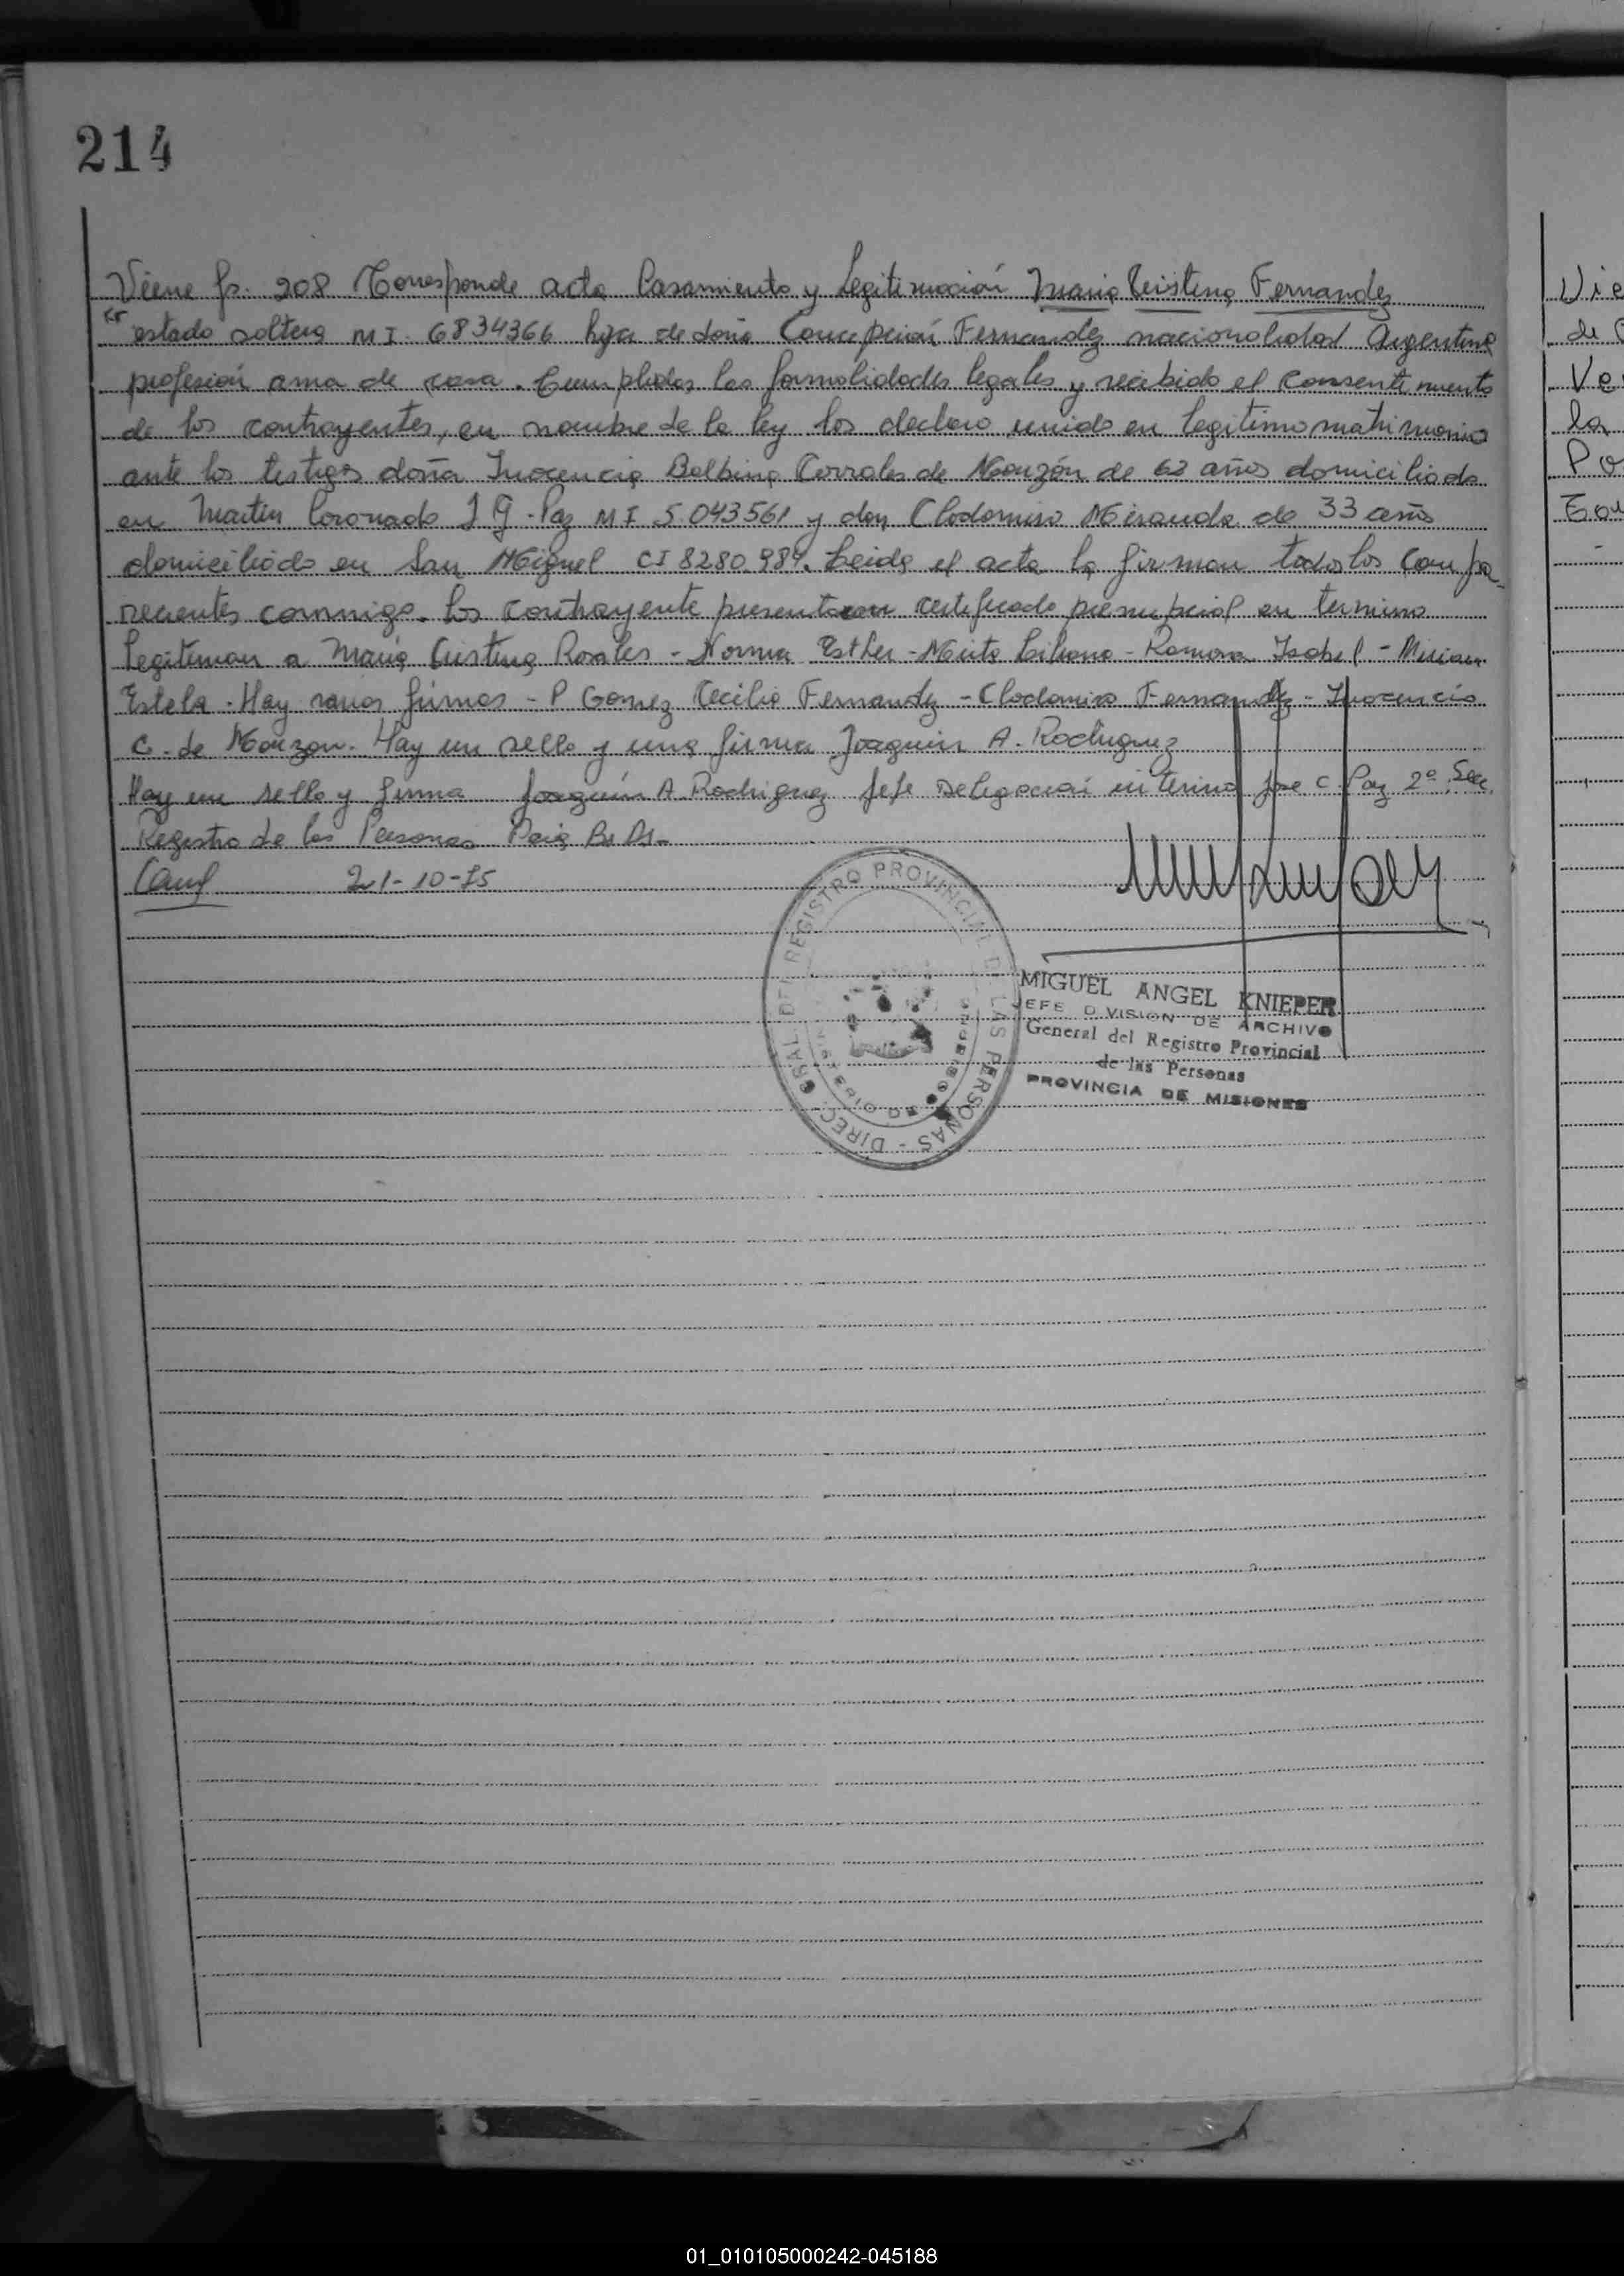 214
Viene fs. 208 Corresponde acta Casamiento y Legitimación Maria Cristina Fernandez
estado soltera M I. 6834366 hija de doña Concepción Fernandez nacionalidad Argentina
profesión ama de casa. Cumplidas las formalidades legales y recibido el consentimiento
de los contrayentes, en nombre de la ley los declaro unido en legitimo matrimonio
ante los testigos doña Inocencia Balbina Corrales de Monzón de 62 años domiciliada
en Martin Coronado J G. Paz M I 5.043561 y don Clodomiro Miranda de 33 años
domiciliado en San Miguel CI 8280.984. Leida el acta la firman todos los compa-
recientes conmigo. Los contrayente presentaron certificado prenupcial en termino
Legitiman a Maria Cristina Rosales - Norma Esther - Mirta Liliana - Ramona Isabel - Miriam
Estela. Hay varias firmas - P Gomez Cecilio Fernandez - Clodomiro Fernandez - Inocencia
C. de Monzon. Hay un sello y una firma Joaquin A. Rodriguez
Hay un sello y firma Joaquín A. Rodriguez Jefe Delegación interino Jose C. Paz 2º Secc.
Registro de las Personas Pcia Bs As.-
21-10-75
REGISTRO PROVINCIAL DE LAS PERSONAS - DIREC. GRAL. DEL
MIGUEL ANGEL KNIEPER
JEFE DIVISION DE ARCHIVO
General del Registro Provincial
de las Personas
PROVINCIA DE MISIONES
Vie
de
Ve
la
Po
01_010105000242-045188